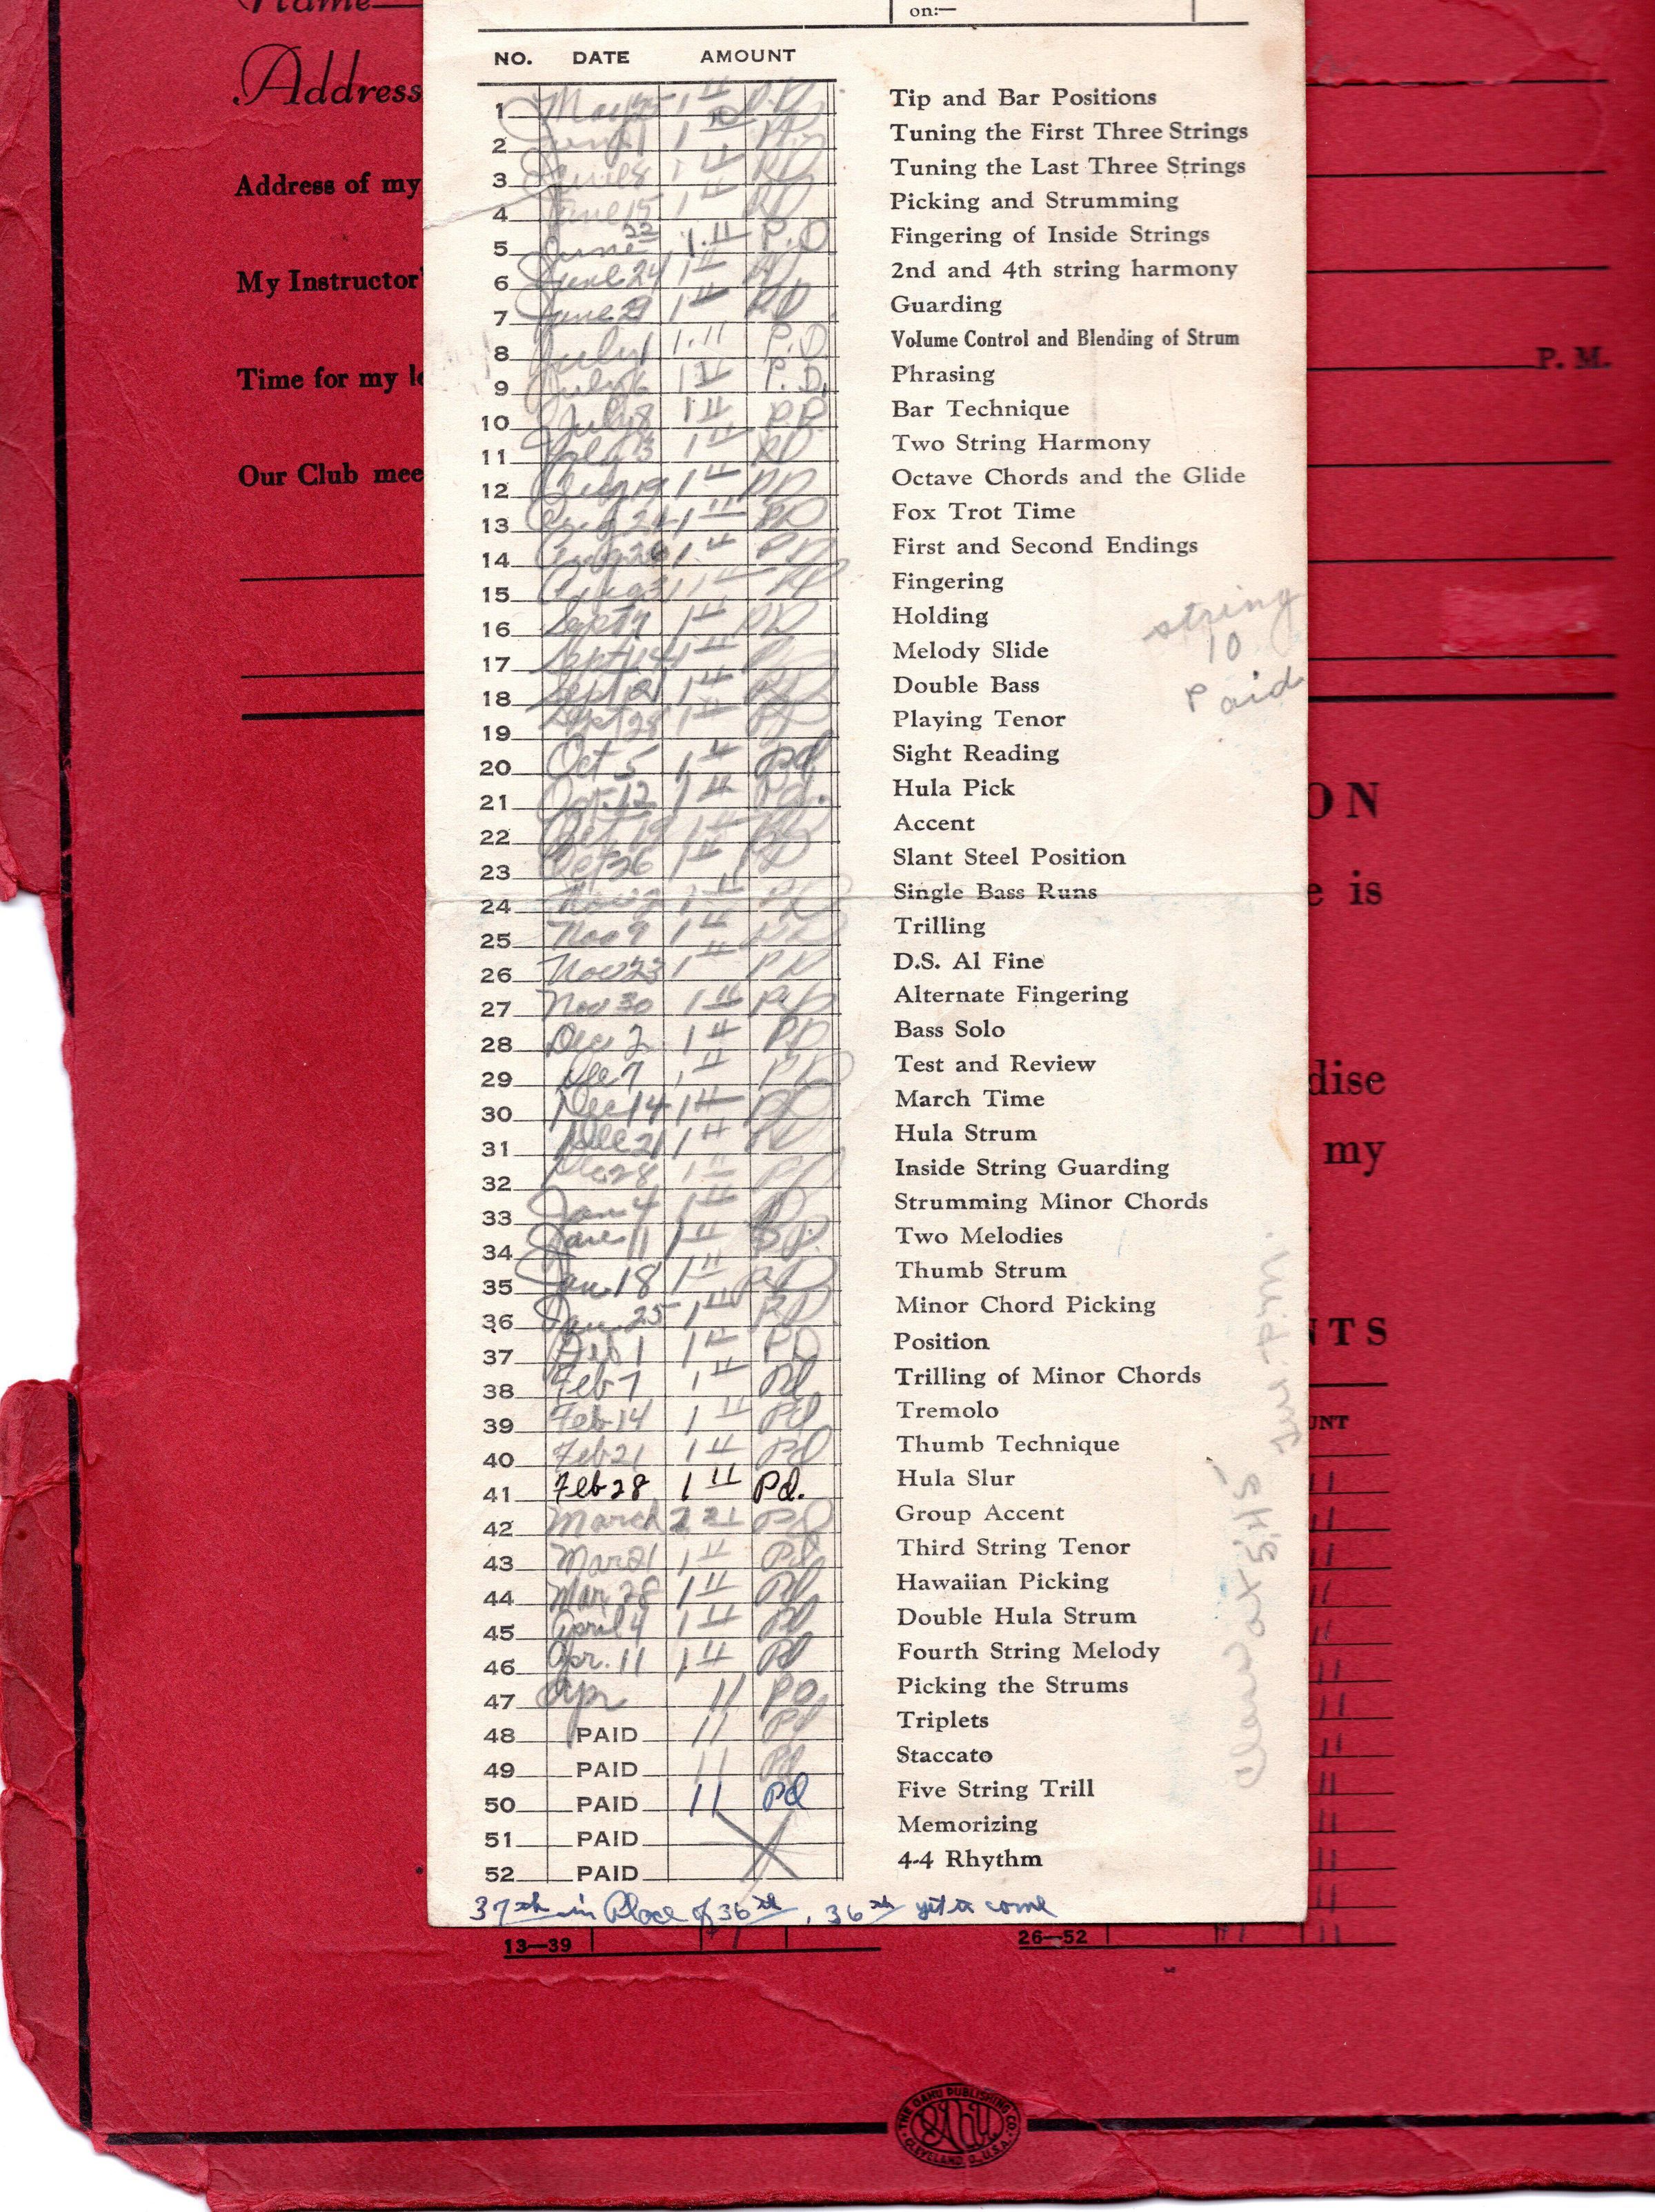 Name
on:—
NO. DATE AMOUNT
Address
1 May 25 1 11 Pd Tip and Bar Positions
2 June 1 1 Pd Tuning the First Three Strings
3 June 8 1 11 PD Tuning the Last Three Strings
Address of my
4 June 15 1 11 PD Picking and Strumming
5 June 22 1.11 P.D Fingering of Inside Strings
My Instructor'
6 June 24 1 11 PD 2nd and 4th string harmony
7 June 29 1 11 PD Guarding
8 July 1 1.11 P.D. Volume Control and Blending of Strum
P. M.
Time for my le
9 July 6 1 11 P.D. Phrasing
10 July 8 1 11 PD Bar Technique
11 July 13 1 11 PD Two String Harmony
Our Club mee
12 19 1 11 PD Octave Chords and the Glide
13 Aug 24 1 11 PD Fox Trot Time
14 Aug 26 1 11 PD First and Second Endings
15 Aug 31 1 11 PD Fingering
16 Sept 7 1 11 PD Holding
string
10
Paid
17 Sept 14 1 11 Melody Slide
18 Sept 21 1 11 PD Double Bass
19 Sept 28 1 11 PD Playing Tenor
20 Oct 5 1 11 pd Sight Reading
21 Oct. 12 1 11 Pd. Hula Pick
ON
22 Oct 19 1 11 PD Accent
23 Oct 26 1 11 PD Slant Steel Position
24 Nov 2 1 11 PD Single Bass Runs
e is
25 Nov 9 1 11 PD Trilling
26 Nov 23 1 11 PD D.S. Al Fine
27 Nov 30 1 11 PD Alternate Fingering
28 Dec 2 1 11 PD Bass Solo
29 De 7 1 11 PD Test and Review
dise
30 Dec 14 1 11 PD March Time
31 Dec 21 1 11 PD Hula Strum
my
32 Dec 28 1 11 PD Inside String Guarding
33 Jan 4 1 11 PD Strumming Minor Chords
34 Jan 11 1 11 PD. Two Melodies
35 Jan. 18 1 11 PD Thumb Strum
36 Jan. 25 1 11 PD Minor Chord Picking
NTS
37 Feb 1 1 11 PD Position
38 Feb 7 1 11 Pd Trilling of Minor Chords
39 Feb 14 1 11 Pd Tremolo
UNT
40 Feb 21 1 11 pd Thumb Technique
41 Feb 28 1 11 Pd. Hula Slur
42 March 2 21 PD Group Accent
43 Mar 21 1 11 Pd Third String Tenor
44 Mar 28 1 11 Pd Hawaiian Picking
45 April 4 1 11 Pd Double Hula Strum
46 Apr. 11 1 11 Pd Fourth String Melody
47 Apr 11 PD Picking the Strums
48 PAID 11 Pd Triplets
49 PAID 11 Pd Staccato
50 PAID 11 Pd Five String Trill
51 PAID Memorizing
52 PAID 4-4 Rhythm
at 5:45 P.M.
37th in Place of 36th, 36th yet to come
13—39 26—52 11 11
THE OAHU PUBLISHING CO.
OAHU
CLEVELAND, O., U.S.A.